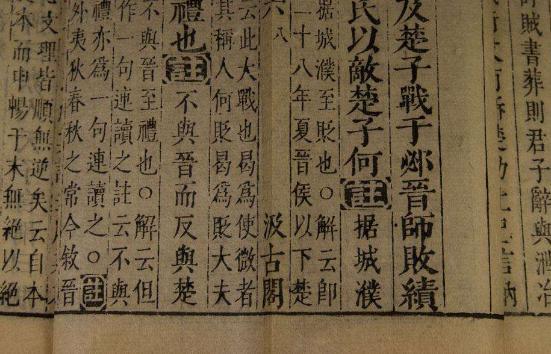 賊書葬則君子辭與
及楚子戰于邲晉師敗績
氏以敵楚子何註据城濮
据城濮至貶也○解云即
十八年夏晉侯以下楚
汲古閣
云此大戰也曷爲使微者
其稱人何貶曷爲貶大夫
禮也註不與晉而反與楚
不與晉至禮也○解云但
作一句連讀之註云不與
禮亦爲一句連讀之○註
外夷狄春秋之常今敘晉
支理皆順無逆矣云自本
而申暢于末無絕以絕